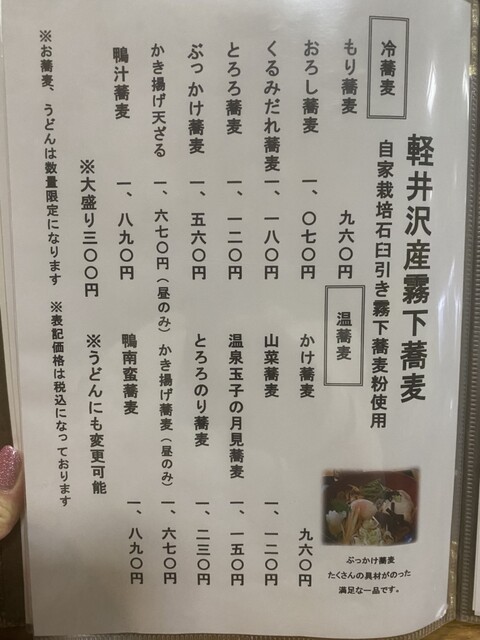 軽井沢産霧下蕎麦
自家栽培石臼引き霧下蕎麦粉使用
冷蕎麦
もり蕎麦 九六〇円
おろし蕎麦 一、〇七〇円
くるみだれ蕎麦 一、一八〇円
とろろ蕎麦 一、一二〇円
ぶっかけ蕎麦 一、五六〇円
かき揚げ天ざる 一、六七〇円(昼のみ)
鴨汁蕎麦 一、八九〇円
※大盛り三〇〇円
温蕎麦
かけ蕎麦 九六〇円
山菜蕎麦 一、一二〇円
温泉玉子の月見蕎麦 一、一五〇円
とろろのり蕎麦 一、二三〇円
かき揚げ蕎麦(昼のみ) 一、六七〇円
鴨南蛮蕎麦 一、八九〇円
※うどんにも変更可能
※お蕎麦、うどんは数量限定になります
※表記価格は税込になっております
ぶっかけ蕎麦
たくさんの具材がのった
満足な一品です。